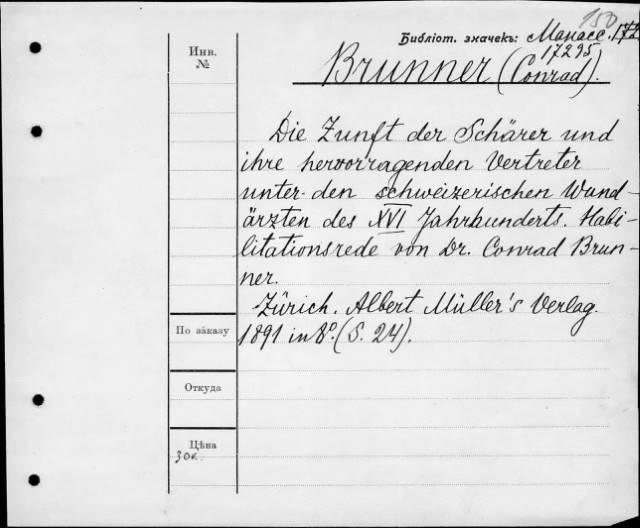 150
Библіот. значекъ: Манасс. 172
17295
Инв.
№
Brunner (Conrad).
Die Zunft der Schärer und
ihre hervorragenden Vertreter
unter den schweizerischen Wund-
ärzten des XVI Jahrhunderts. Habi-
litationsrede von Dr. Conrad Brun-
ner.
Zürich. Albert Müller's Verlag.
1891 in 8º. (S. 24).
По заказу
Откуда
Цѣна
30к.